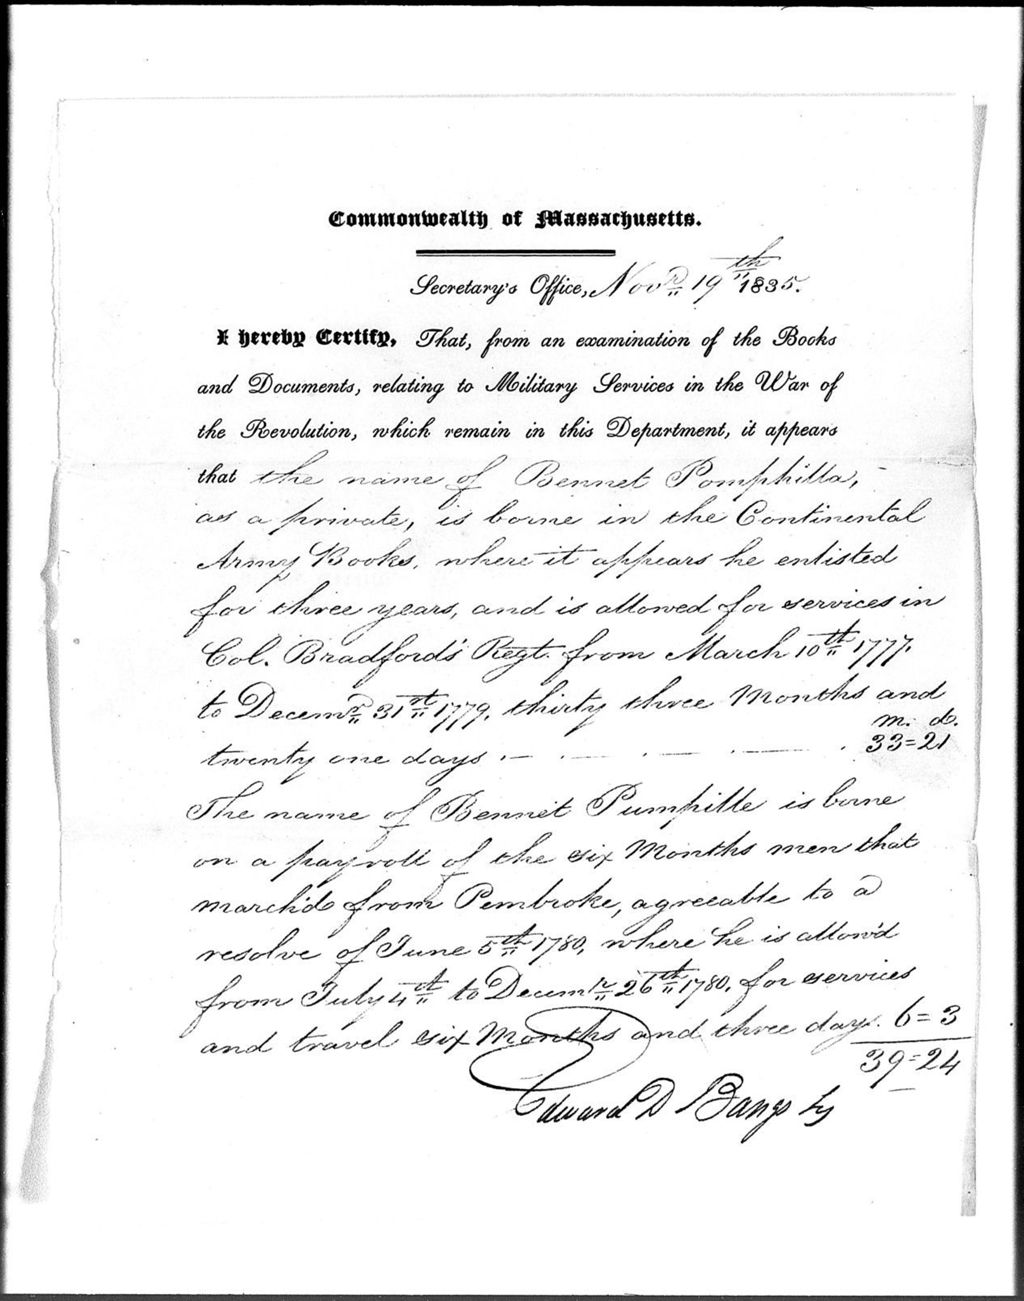 Commonwealth of Massachusetts.
Secretary's Office, Novr 19th 1835.
I hereby Certify, That, from an examination of the Books
and Documents, relating to Military Services in the War of
the Revolution, which remain in this Department, it appears
that the name of Bennet Pomphilla,
as a private, is borne in the Continental
Army Books, where it appears he enlisted
for three years, and is allowed for services in
Col. Bradford's Regt. from March 10th 1777.
to Decemr 31st 1779, thirty three Months and
m. d.
twenty one days . - . - . - . 33=21
The name of Bennet Pumpille is borne
on a payroll of the six Months men that
march'd from Pembroke, agreeable to a
resolve of June 5th 1780, where he is allow'd
from July 4th to Decemr 26th 1780, for services
and travel six Months and three days. 6=3
39=24
Edward D Bangs Sy